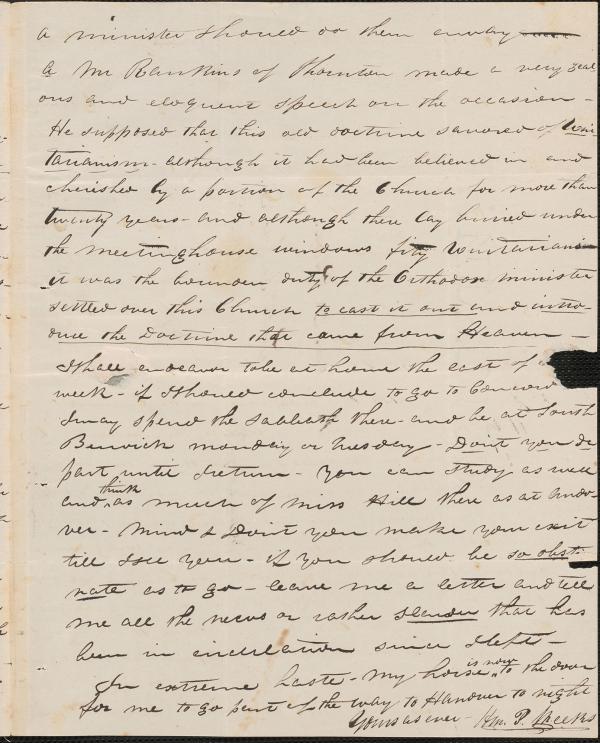 a minister should do them away
A Mr Rankins of Thornton made a very zeal
ous and eloquent speech on the occasion -
He supposed that this old doctrine savored of Uni
tarianism - although it had been believed in and
cherished by a portion of the Church for more than
twenty years - and although there lay buried under
the meetinghouse windows fifty Unitarians
it was the bounden duty of the Orthodox minister
settled over this Church to cast it out and intro-
duce the Doctrine that came from Heaven -
I shall endeavor to be at home the last of
week - if I should conclude to go to Concord
I may spend the Sabbath there - and be at South
Berwick monday or tuesday - Don't you de
part until I return - You can study as well
and think as much of miss Hill there as at Ando-
ver - Mind & Don't you make your exit
till I see you - if you should be so obsti
nate as to go - leave me a letter and tell
me all the news or rather slander that has
been in circulation since I left -
In extreme haste - My horse is now to the door
for me to go part of the way to Hanover to night
Yours as ever - Wm. P.